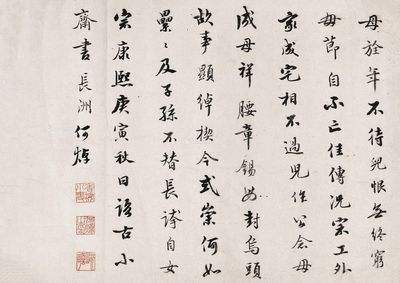 母詮年不待兒恨無終窮
母節自不亡佳傳況宗工外
家成宅相不過兒作公念母
成母祥腰章錫母封烏頭
故事顯綽楔今或崇何如
纍纍及子孫不替長誇自女
宗康熙庚寅秋日語古小
齋書長洲何焯